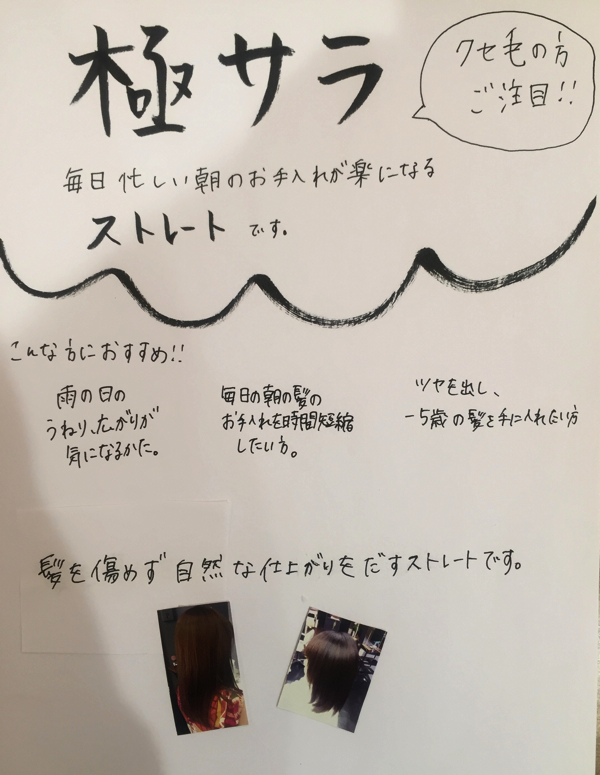 極サラ
クセ毛の方
ご注目!!
毎日忙しい朝のお手入れが楽になる
ストレートです。
こんな方におすすめ!!
雨の日の
うねり、広がりが
気になるかた。
毎日の朝の髪の
お手入れを時間短縮
したい方。
ツヤを出し、
-5歳の髪を手に入れたい方
髪を傷めず自然な仕上がりをだすストレートです。